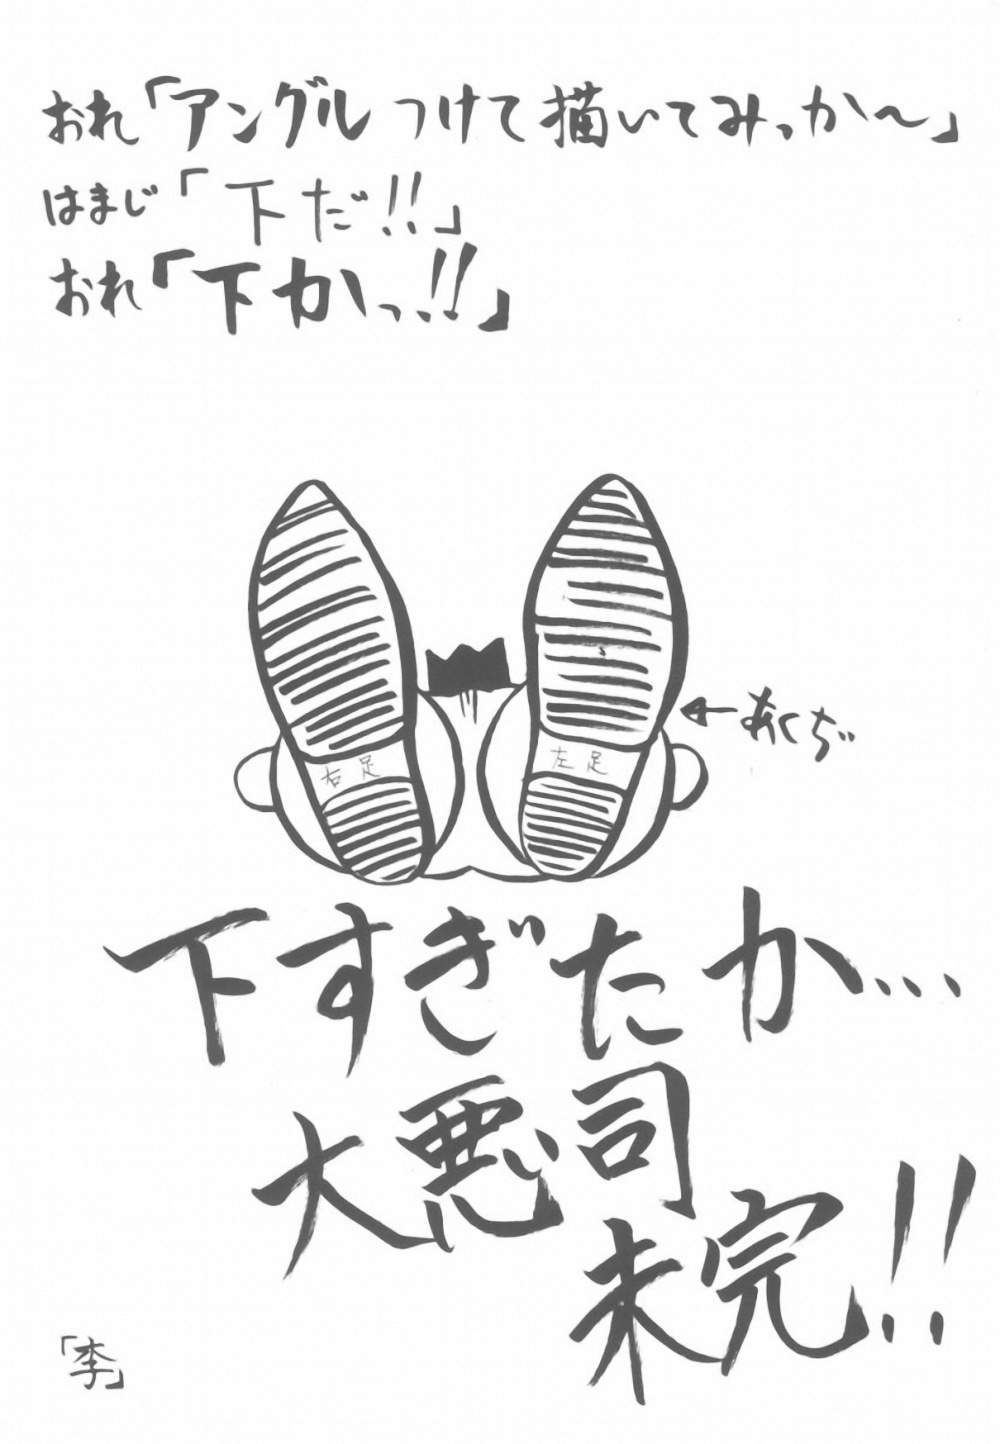 おれ「アングルつけて描いてみっか〜」
はまじ「下だ!!」
おれ「下かっ!!」
←あくぢ
右足
左足
下すぎたか…
大悪司
未完!!
「李」